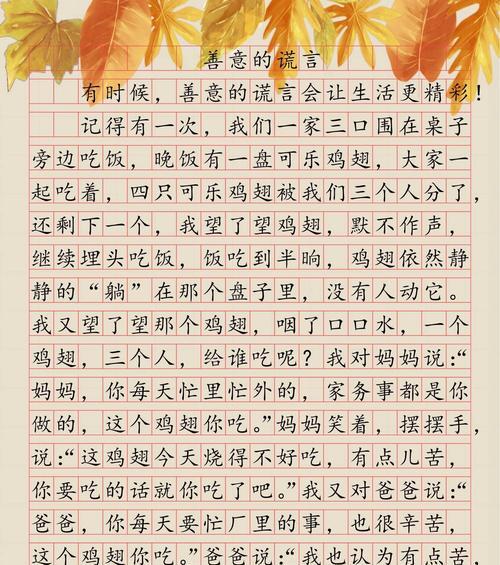 善意的谎言
有时候，善意的谎言会让生活更精彩！
记得有一次，我们一家三口围在桌子
旁边吃饭，晚饭有一盘可乐鸡翅，大家一
起吃着，四只可乐鸡翅被我们三个人分了，
还剩下一个，我望了望鸡翅，默不作声，
继续埋头吃饭，饭吃到半晌，鸡翅依然静
静的“躺”在那个盘子里，没有人动它。
我又望了望那个鸡翅，咽了口口水，一个
鸡翅，三个人，给谁吃呢？我对妈妈说：“
妈妈，你每天忙里忙外的，家务事都是你
做的，这个鸡翅你吃。”妈妈笑着，摆摆手，
说：“这鸡翅今天烧得不好吃，有点儿苦，
你要吃的话就你吃了吧。”我又对爸爸说：“
爸爸，你每天要忙厂里的事，也很辛苦，
这个鸡翅你吃。”爸爸说：“我也认为有点苦，